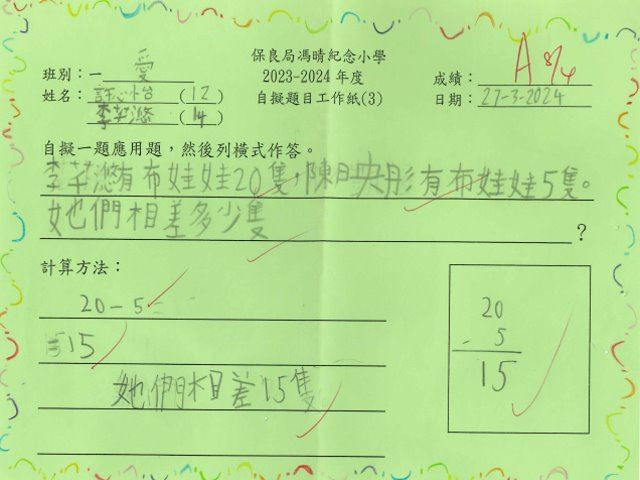 保良局馮晴紀念小學
2023-2024 年度
自擬題目工作紙(3)
班別：一 愛
姓名：許心怡 (12)
李芊悠 (14)
成績：A
日期：27-3-2024
自擬一題應用題，然後列橫式作答。
李芊悠有布娃娃20隻，陳映彤有布娃娃5隻。
她們相差多少隻 ？
計算方法：
20-5
=15
她們相差15隻
20
- 5
15